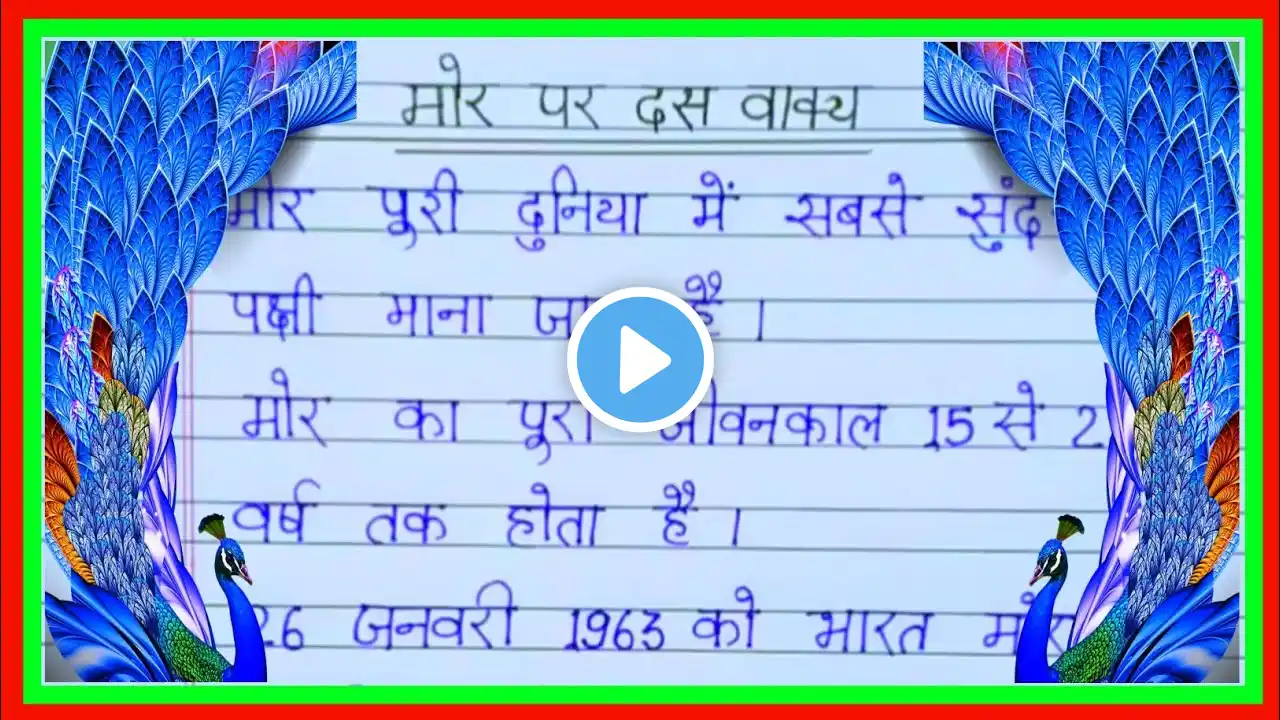 मोर पर दस वाक्य
मोर पूरी दुनिया में सबसे
पक्षी माना है।
मोर का पूरा जीवनकाल 15 से
वर्ष तक होता है।
26 जनवरी 1963 को भारत